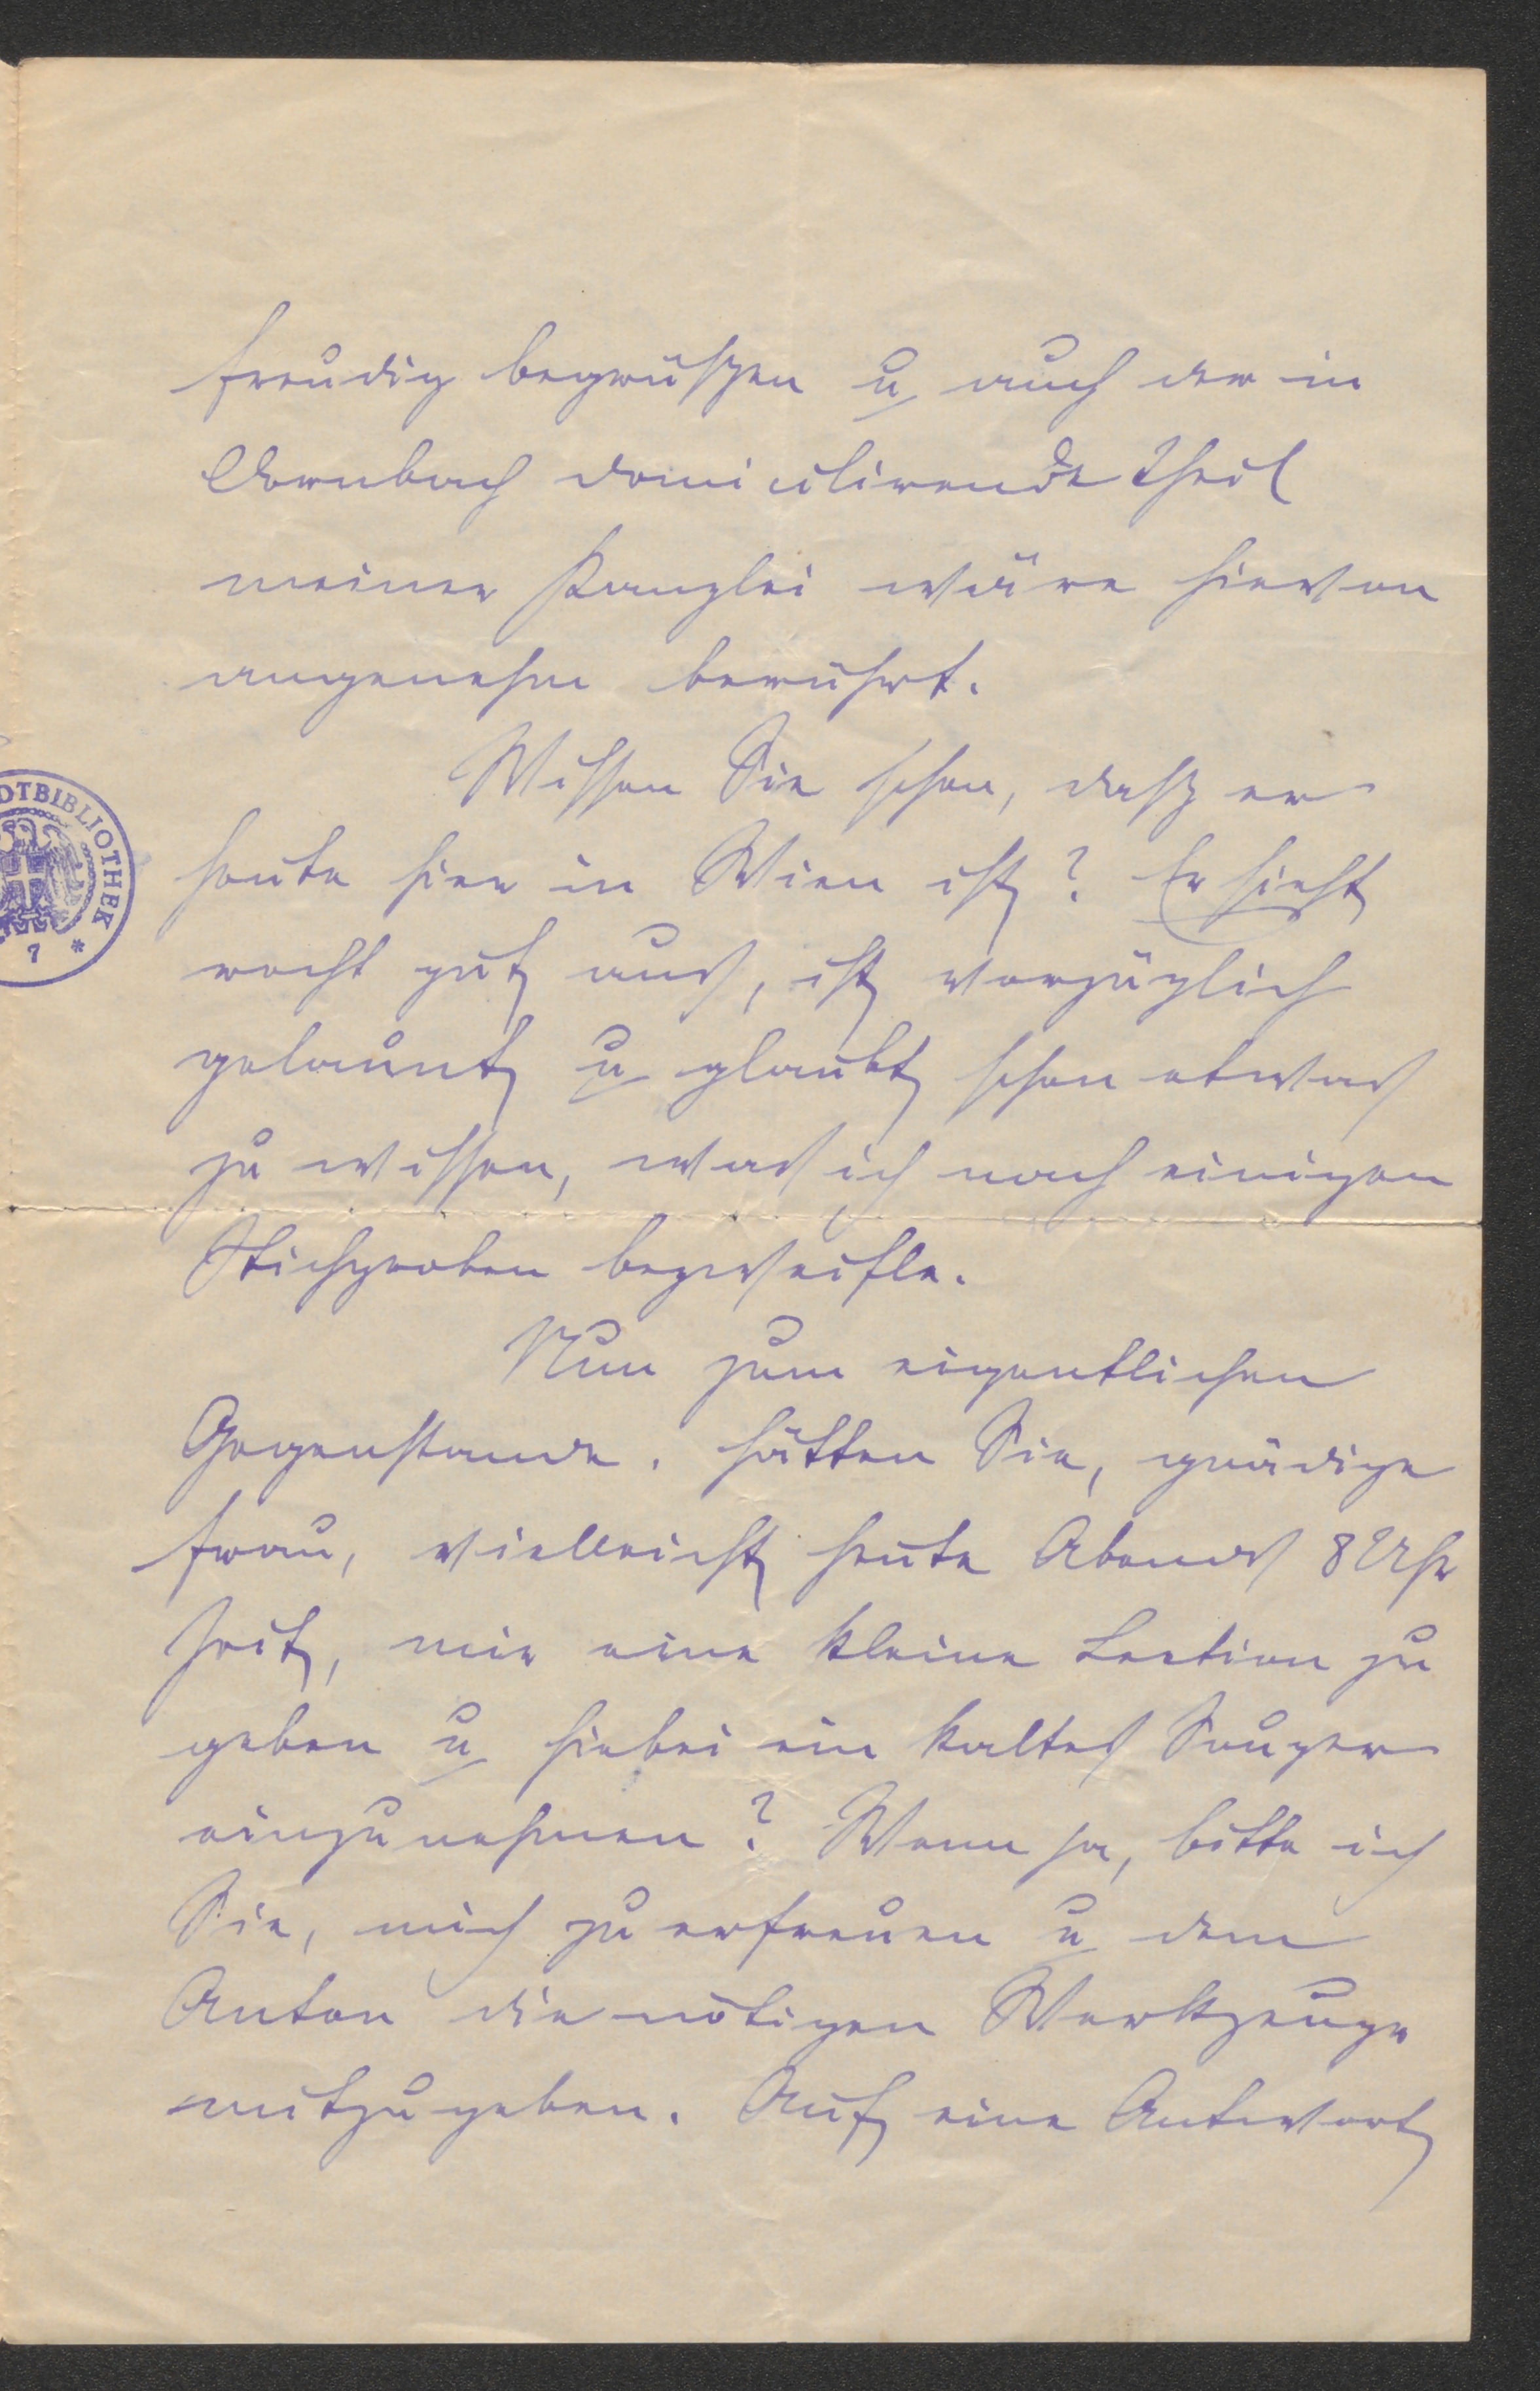 freudig begrüßen u auch der in
Dornbach domicilirende Theil
meiner Kanzlei wäre hievon
angenehm berührt.
Wissen Sie schon, daß er
heute hier in Wien ist? Er sieht
recht gut aus, ist vorzüglich
gelaunt u glaubt schon etwas
zu wissen, was ich nach einigen
Stichproben bezweifle.
Nun zum eigentlichen
Gegenstande. Hätten Sie, gnädige
Frau, vielleicht heute Abends 8 Uhr
Zeit, mir eine kleine Lection zu
geben u hiebei ein kaltes Souper
einzunehmen? Wenn ja, bitte ich
Sie, mich zu erfreuen u dem
Anton die nötigen Werkzeuge
mitzugeben. Auf eine Antwort
DTBIBLIOTHEK
7 *